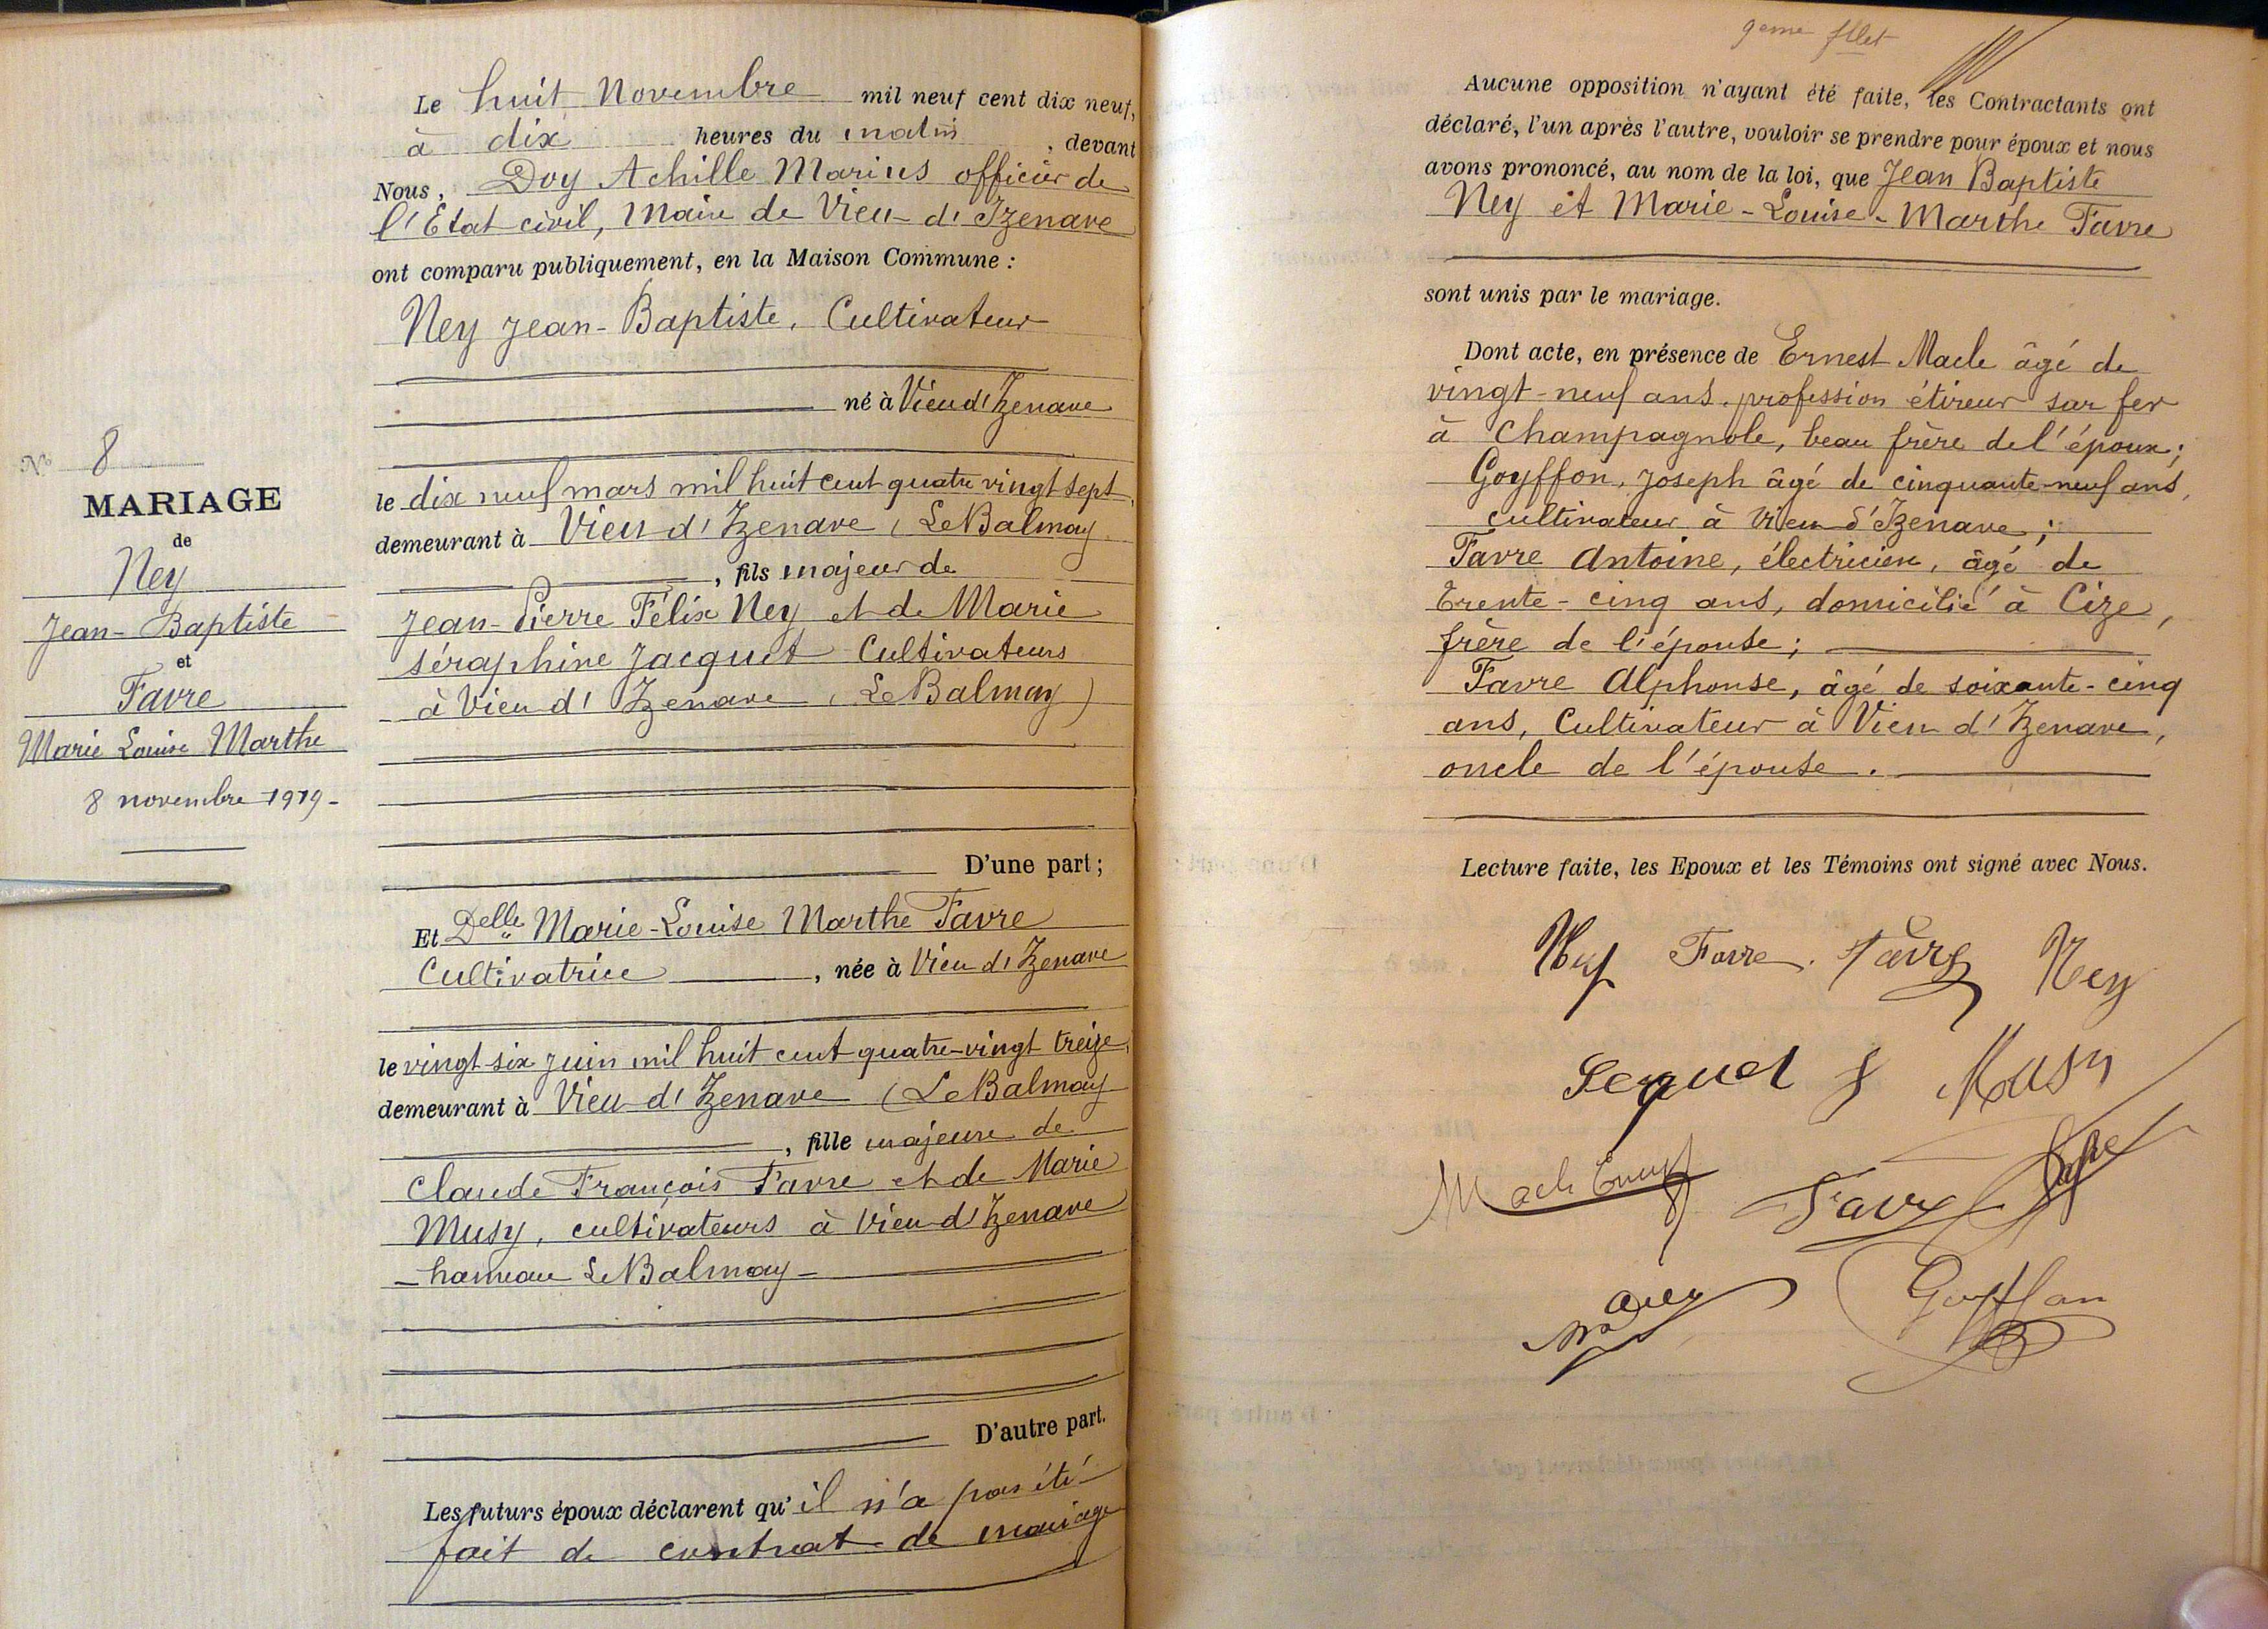 N° 8
MARIAGE
de
Ney
Jean-Baptiste
et
Favre
Marie Louise Marthe
8 novembre 1919-
Le huit Novembre mil neuf cent dix neuf,
à dix heures du matin, devant
Nous, Doy Achille Marius officier de
l'Etat civil, Maire de Vieu-d'Izenave
ont comparu publiquement, en la Maison Commune :
Ney Jean-Baptiste, Cultivateur
né à Vieu d'Izenave
le dix neuf mars mil huit cent quatre vingt sept,
demeurant à Vieu d'Izenave (Le Balmay
, fils majeur de
Jean-Pierre Félix Ney et de Marie
séraphine Jacquet Cultivateurs
à Vieu d'Izenave (Le Balmay)
D'une part;
Et Delle Marie-Louise Marthe Favre
Cultivatrice, née à Vieu d'Izenave
le vingt-six juin mil huit cent quatre-vingt treize,
demeurant à Vieu d'Izenave (Le Balmay
, fille majeure de
Claude François Favre et de Marie
Musy, cultivateurs à Vieu d'Izenave
-hameau Le Balmay-
D'autre part.
Les futurs époux déclarent qu'il n'a pas été
fait de contrat de mariage
9eme fllet
Aucune opposition n'ayant été faite, les Contractants ont
déclaré, l'un après l'autre, vouloir se prendre pour époux et nous
avons prononcé, au nom de la loi, que Jean Baptiste
Ney et Marie-Louise-Marthe Favre
sont unis par le mariage.
Dont acte, en présence de Ernest Macle âgé de
vingt-neuf ans, profession étireur sur fer
à Champagnole, beau frère de l'époux;
Goyffon, Joseph âgé de cinquante-neuf ans,
cultivateur à Vieu d'Izenave;
Favre Antoine, électricien, âgé de
trente-cinq ans, domicilié à Cize,
frère de l'épouse;
Favre Alphonse, âgé de soixante-cinq
ans, Cultivateur à Vieu d'Izenave,
oncle de l'épouse.
Lecture faite, les Epoux et les Témoins ont signé avec Nous.
Ney Favre Favre Ney
Musy
Favre
Goyffon